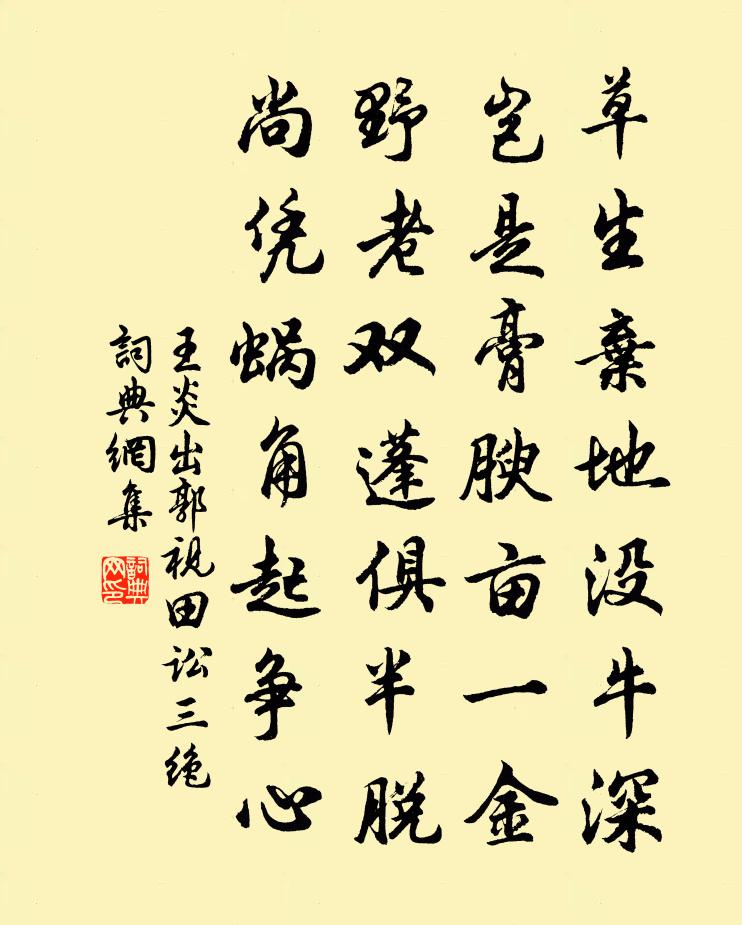 草生棄地没牛深
岂是膏腴亩一金
野老双蓬俱半脱
尚凭蜗角起争心
王炎出郭视田讼三绝
詞典網集
詞典网印